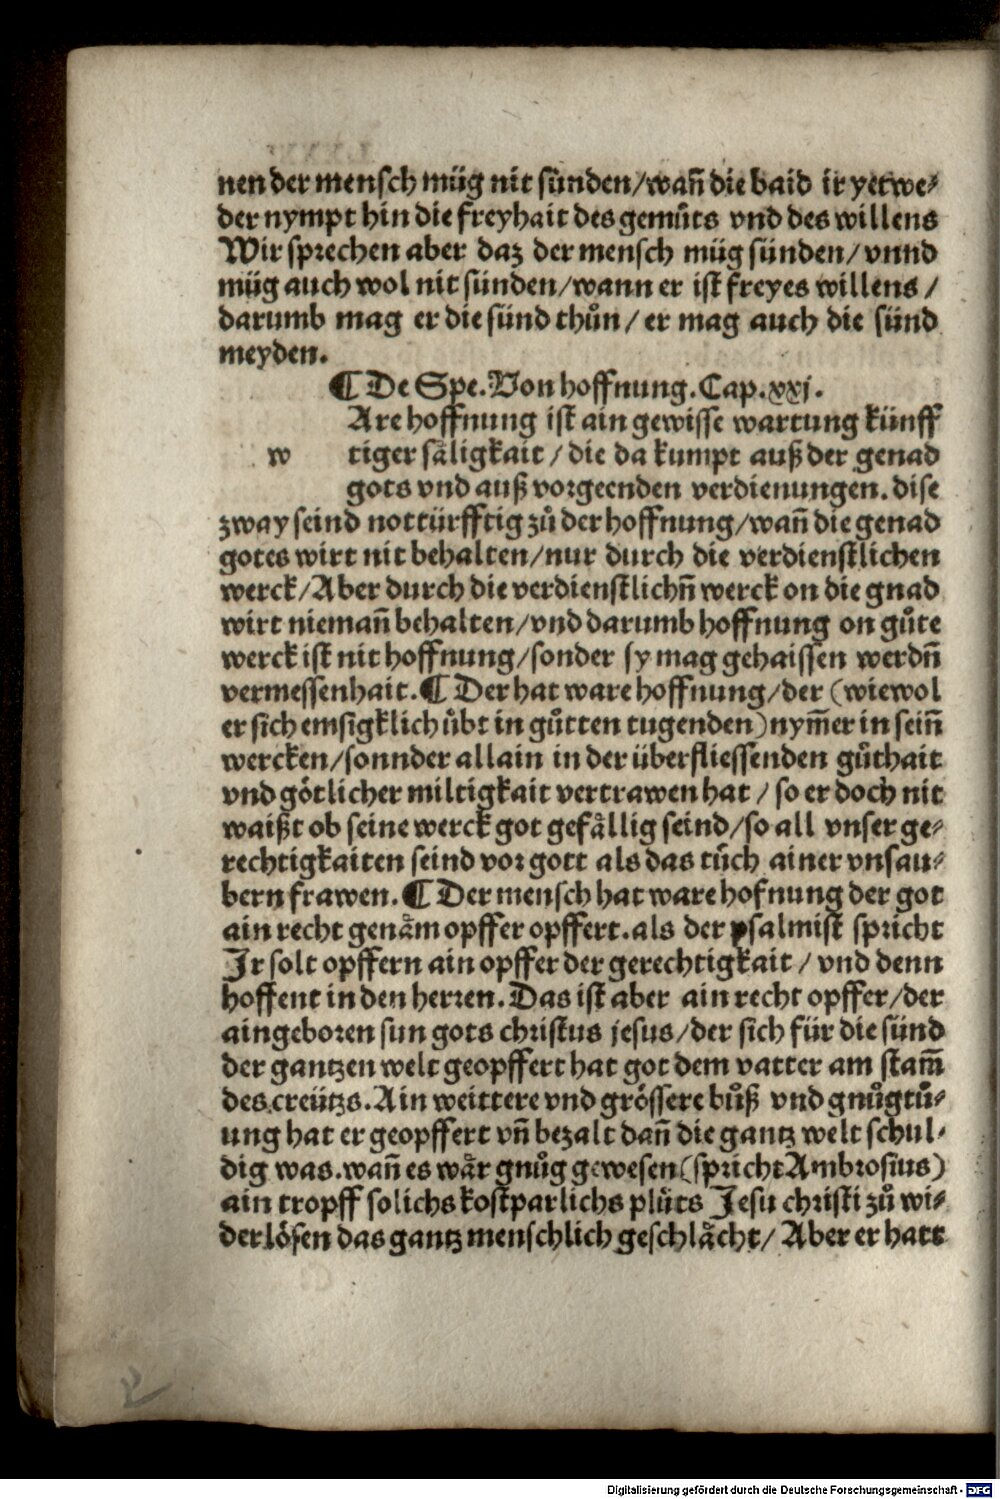 nen der mensch müg nit sünden/wañ die baid ir yetwe⸗
der nympt hin die freyhait des gemüts vnd des willens
Wir sprechen aber daz der mensch müg sünden/vnnd
müg auch wol nit sünden/wann er ist freyes willens/
darumb mag er die sünd thůn/er mag auch die sünd
meyden.
¶ De Spe. Von hoffnung. Cap. xxj.
Are hoffnung ist ain gewisse wartung künff
w tiger säligkait/die da kumpt auß der genad
gots vnd auß vorgeenden verdienungen. dise
zway seind nottürfftig zů der hoffnung/wañ die genad
gotes wirt nit behalten/nur durch die verdienstlichen
werck/Aber durch die verdienstlichñ werck on die gnad
wirt niemañ behalten/vnd darumb hoffnung on gůte
werck ist nit hoffnung/sonder sy mag gehaissen werdñ
vermessenhait. ¶ Der hat ware hoffnung/der (wiewol
er sich emsigklich übt in gůtten tugenden) nym̃er in seiñ
wercken/sonnder allain in der überfliessenden gůthait
vnd götlicher miltigkait vertrawen hat/so er doch nit
waißt ob seine werck got gefällig seind/so all vnser ge⸗
rechtigkaiten seind vor gott als das tůch ainer vnsau⸗
bern frawen. ¶ Der mensch hat ware hofnung der got
ain recht genäm opffer opffert. als der psalmist spricht
Ir solt opffern ain opffer der gerechtigkait/vnd denn
hoffent in den herren. Das ist aber ain recht opffer/der
aingeboren sun gots christus jesus/der sich für die sünd
der gantzen welt geopffert hat got dem vatter am stam̃
des creütz. Ain weittere vnd grössere bůß vnd gnůgtů⸗
ung hat er geopffert vñ bezalt dañ die gantz welt schul⸗
dig was. wañ es wär gnůg gewesen (spricht Ambrosius)
ain tropff solichs kostparlichs plůts Jesu christi zů wi⸗
derlösen das gantz menschlich geschlächt/Aber er hatt
Digitalisierung gefördert durch die Deutsche Forschungsgemeinschaft - DFG